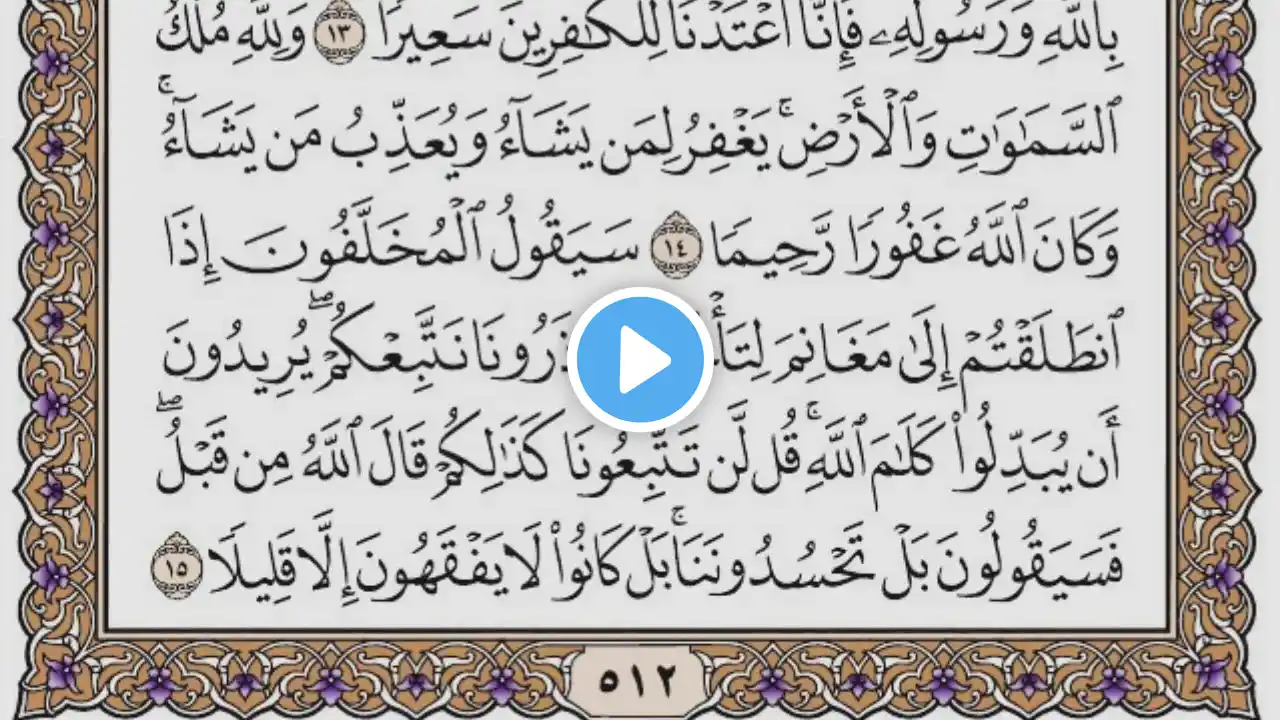 بِٱللَّهِ وَرَسُولِهِۦ فَإِنَّآ أَعْتَدْنَا لِلْكَٰفِرِينَ سَعِيرًا ١٣ وَلِلَّهِ مُلْكُ
ٱلسَّمَٰوَٰتِ وَٱلْأَرْضِ ۚ يَغْفِرُ لِمَن يَشَآءُ وَيُعَذِّبُ مَن يَشَآءُ ۚ
وَكَانَ ٱللَّهُ غَفُورًا رَّحِيمًا ١٤ سَيَقُولُ ٱلْمُخَلَّفُونَ إِذَا
ٱنطَلَقْتُمْ إِلَىٰ مَغَانِمَ نَتَّبِعْكُمْ ۖ يُرِيدُونَ
أَن يُبَدِّلُوا۟ كَلَٰمَ ٱللَّهِ ۚ قُل لَّن تَتَّبِعُونَا كَذَٰلِكُمْ قَالَ ٱللَّهُ مِن قَبْلُ ۖ
فَسَيَقُولُونَ بَلْ تَحْسُدُونَنَا ۚ بَلْ كَانُوا۟ لَا يَفْقَهُونَ إِلَّا قَلِيلًا ١٥
٥١٢